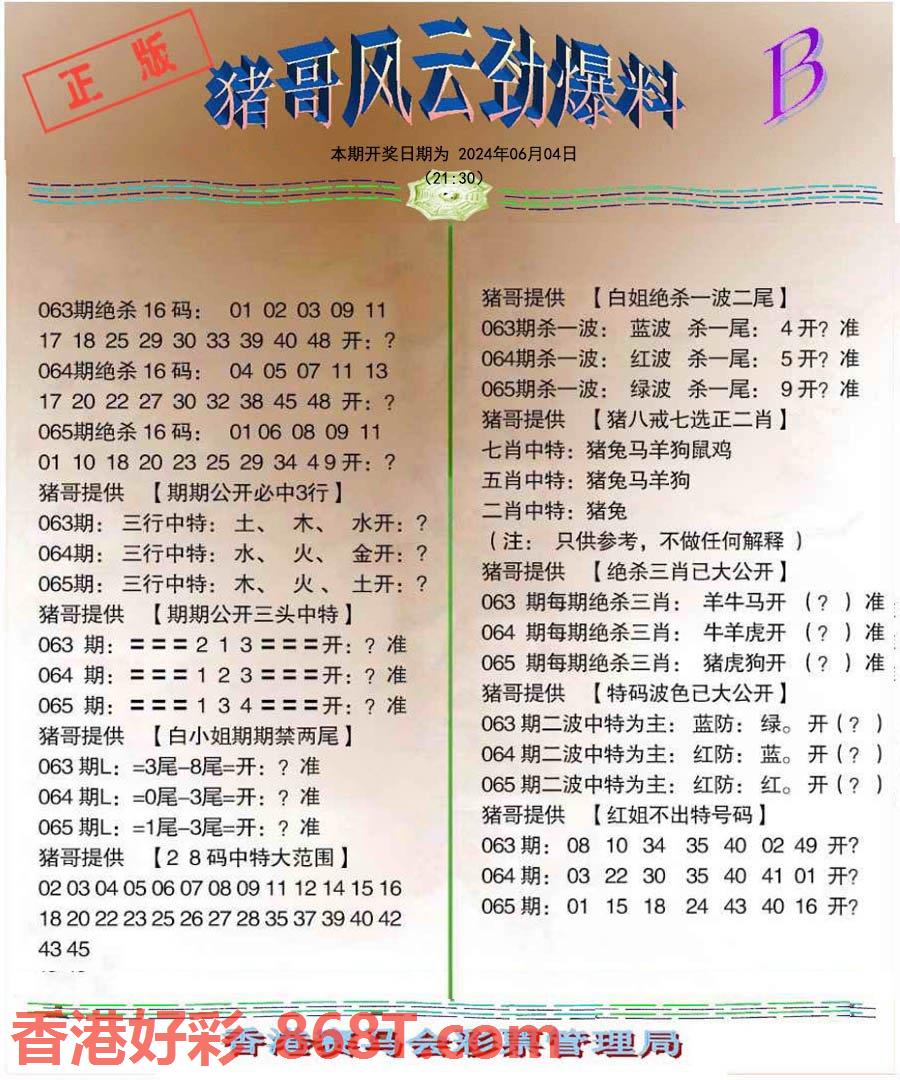 正版
猪哥风云劲爆料
B
本期开奖日期为 2024年06月04日
（21:30）
063期绝杀16码： 01 02 03 09 11
17 18 25 29 30 33 39 40 48 开：?
064期绝杀16码： 04 05 07 11 13
17 20 22 27 30 32 38 45 48 开：?
065期绝杀16码： 01 06 08 09 11
01 10 18 20 23 25 29 34 4 9 开：?
猪哥提供 【期期公开必中3行】
063期： 三行中特： 土、 木、 水开：?
064期： 三行中特： 水、 火、 金开：?
065期： 三行中特： 木、 火 、 土开：?
猪哥提供 【期期公开三头中特】
063 期： === 2 1 3 ===开：? 准
064 期： === 1 2 3 ===开：? 准
065 期： === 1 3 4 ===开：? 准
猪哥提供 【白小姐期期禁两尾】
063 期L：=3尾–8尾=开：? 准
064 期L：=0尾–3尾=开：? 准
065 期L：=1尾–3尾=开：? 准
猪哥提供 【2 8码中特大范围】
02 03 04 05 06 07 08 09 11 12 14 15 16
18 20 22 23 25 26 27 28 35 37 39 40 42
43 45
猪哥提供 【白姐绝杀一波二尾】
063期杀一波： 蓝波 杀一尾： 4 开? 准
064期杀一波： 红波 杀一尾： 5 开? 准
065期杀一波： 绿波 杀一尾： 9 开? 准
猪哥提供 【猪八戒七选正二肖】
七肖中特：猪兔马羊狗鼠鸡
五肖中特：猪兔马羊狗
二肖中特：猪兔
（注： 只供参考，不做任何解释 ）
猪哥提供 【绝杀三肖已大公开】
063 期每期绝杀三肖： 羊牛马开 （? ）准
064 期每期绝杀三肖： 牛羊虎开 （? ）准
065 期每期绝杀三肖： 猪虎狗开 （? ）准
猪哥提供 【特码波色已大公开】
063 期二波中特为主： 蓝防： 绿。 开（? ）
064 期二波中特为主： 红防： 蓝。 开（? ）
065 期二波中特为主： 红防： 红。 开（? ）
猪哥提供 【红姐不出特号码】
063 期： 08 10 34 35 40 02 49 开?
064 期： 03 22 30 35 40 41 01 开?
065 期： 01 15 18 24 43 40 16 开?
香港好彩 868T.com
香港赛马会彩票管理局